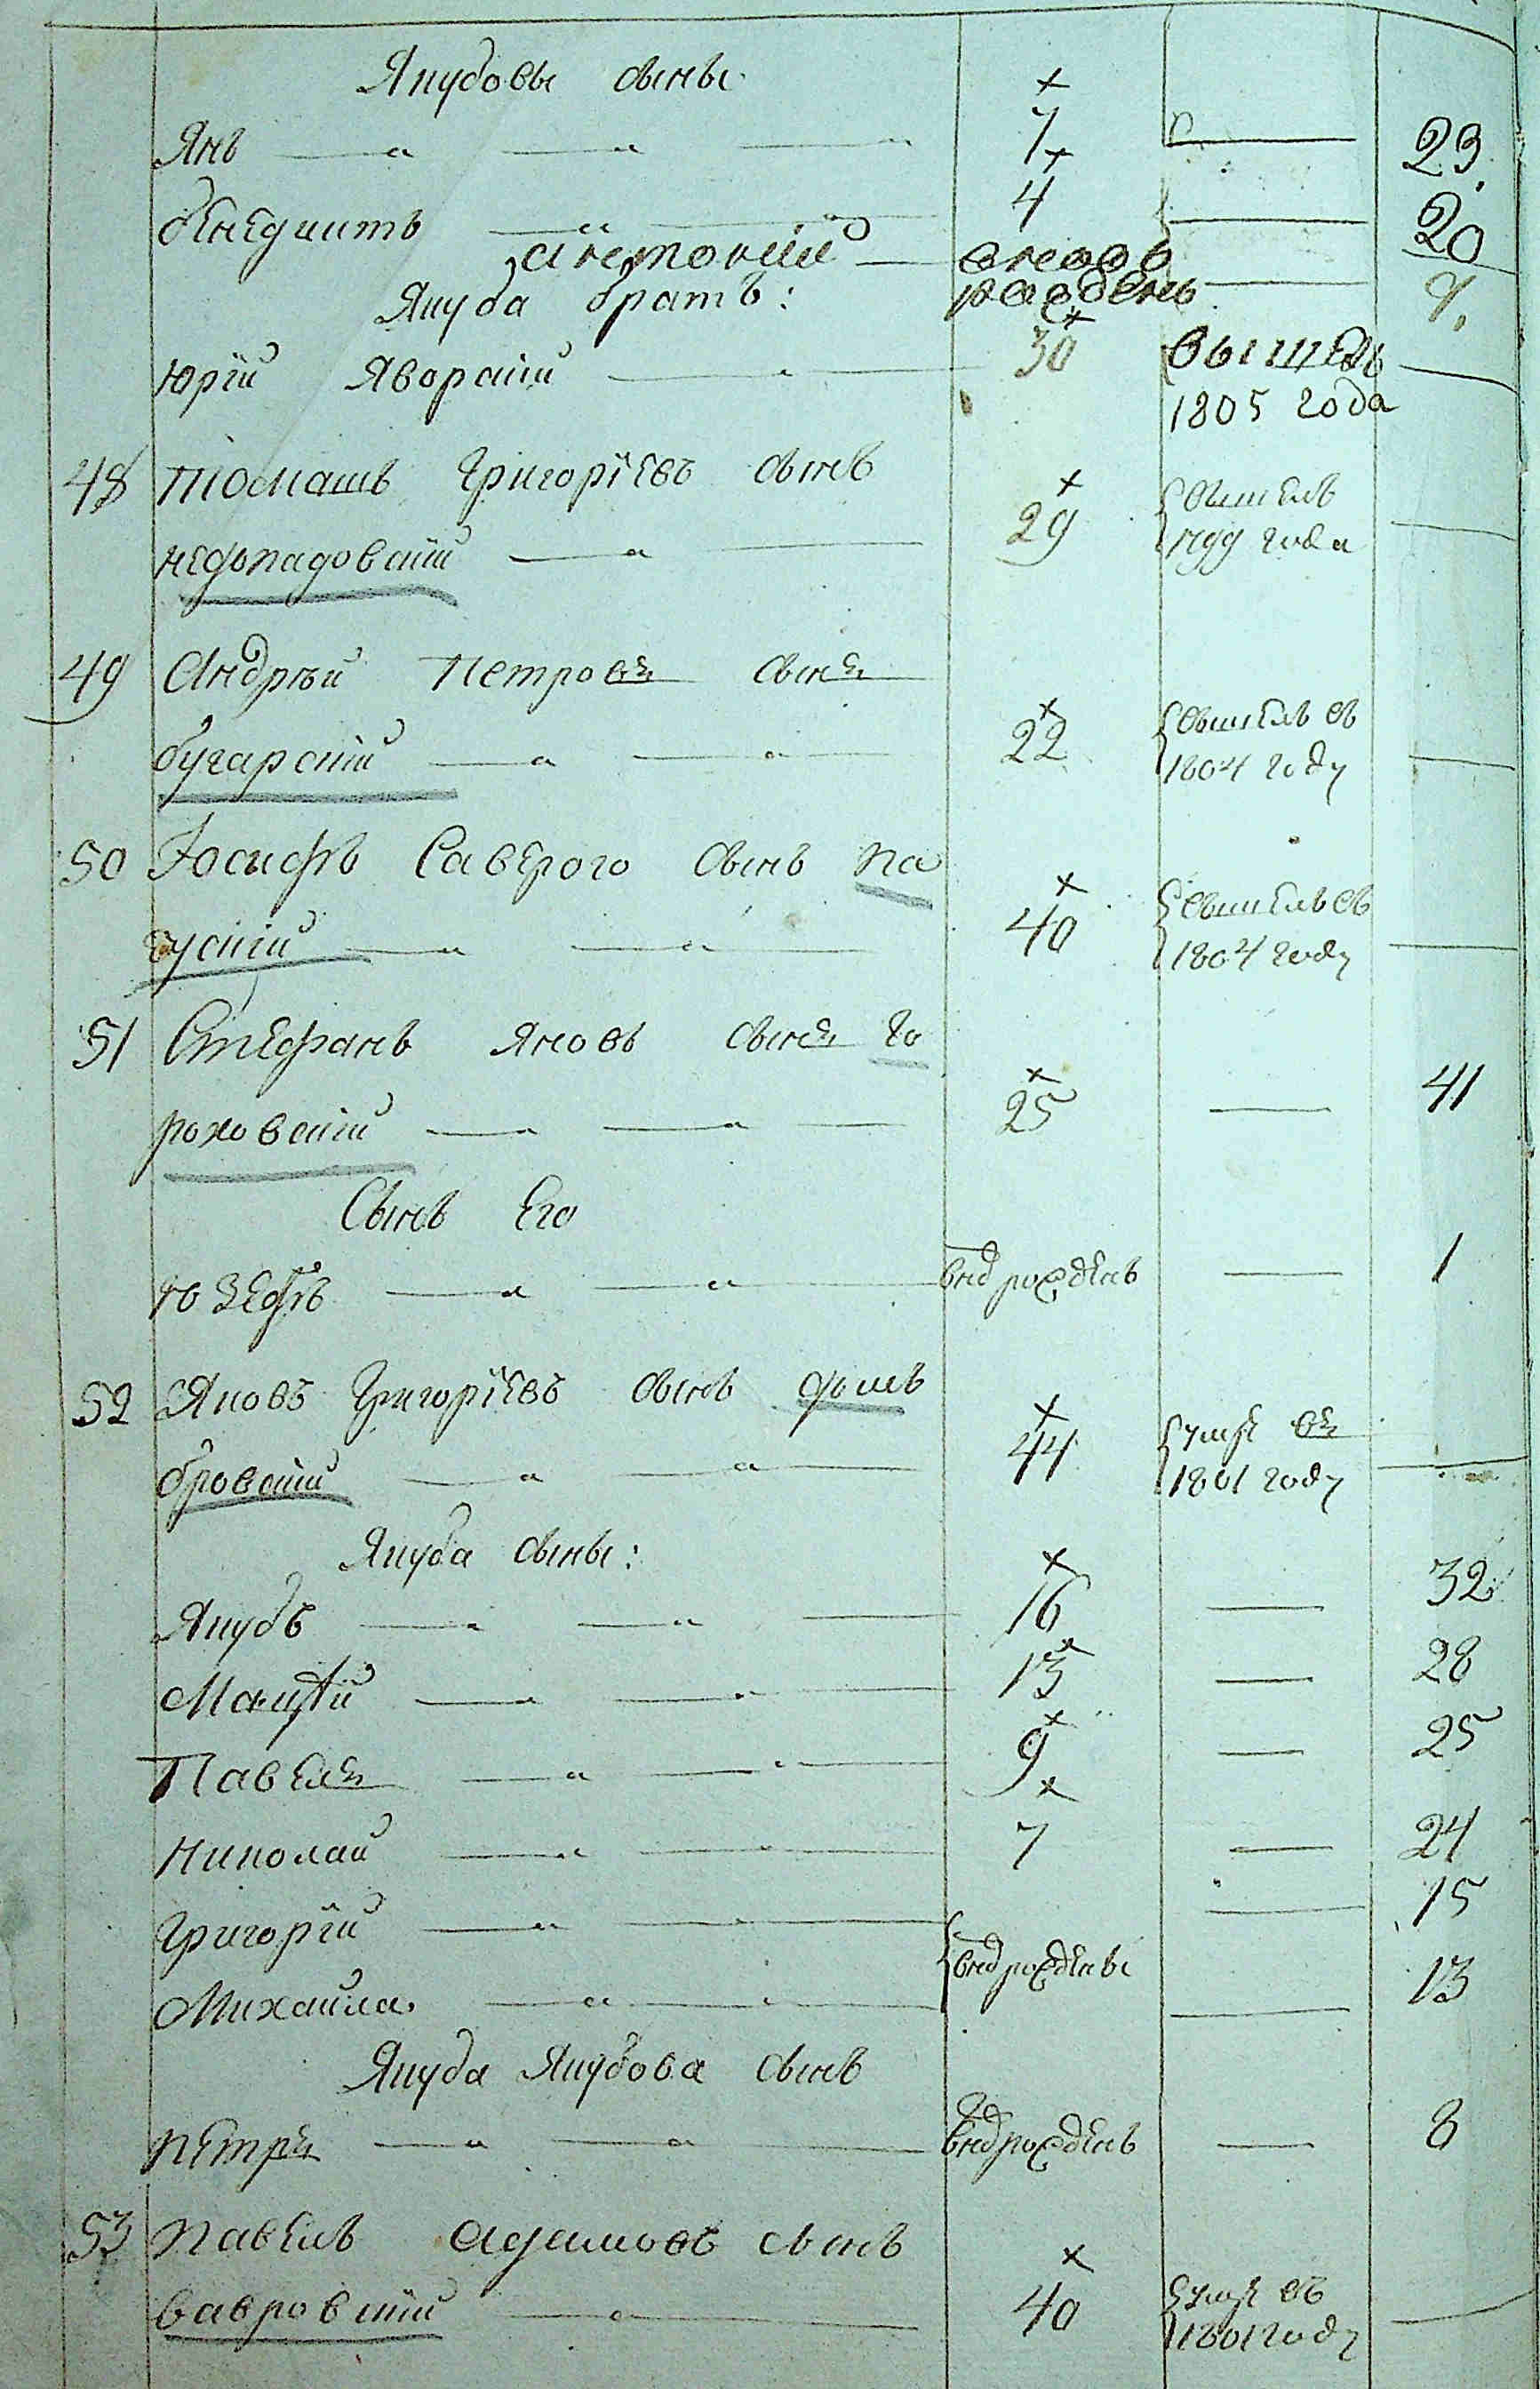 Якубовы сыны
Янъ 7 23
бенедиктъ 4 20
Антоній вновь рожденъ 9
Якуба братъ:
Юрій Яворскій 30 вышелъ
1805 года
48 Томашъ Григоріевъ сынъ
29 вышелъ
1799 года
49 Андрѣй Петровъ сынъ
бугарскій 22 вышелъ въ
1804 году
50 Іосифъ Саверого сынъ Па
40 вышелъ въ
чускій 1804 году
51 Стефанъ Яновъ сынъ Го
роховскій 25 41
Сынъ Его
Юзефъ внов рожденъ 1
52 Яковъ Григоріевъ сынъ домъ
бровскій 44 умре въ
1801 году
Якуба сыны:
Якубъ 16 32
Мацѣй 13 28
Павелъ 9 25
Николай 7 24
Григорій 15
внов рождены
Михайла 13
Якуба Якубова сынъ
Петръ внов рожденъ 8
53 Павелъ Адамовъ сынъ
вавровскій 40 умре въ
1801 году